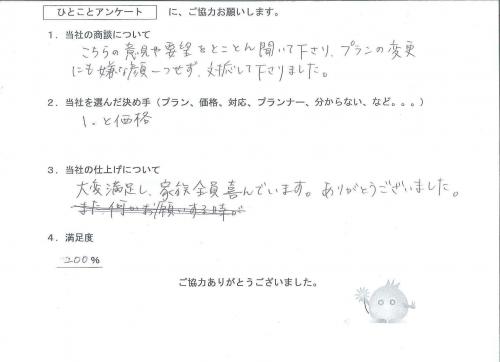 ひとことアンケート に、ご協力お願いします。
1．当社の商談について
こちらの意見や要望をとことん聞いて下さり、プランの変更
にも嫌な顔一つせず、対応して下さりました。
2．当社を選んだ決め手（プラン、価格、対応、プランナー、分からない、など。。。）
1. と価格
3．当社の仕上げについて
大変満足し、家族全員喜んでいます。ありがとうございました。
また何かお願いする時が
4．満足度
200％
ご協力ありがとうございました。